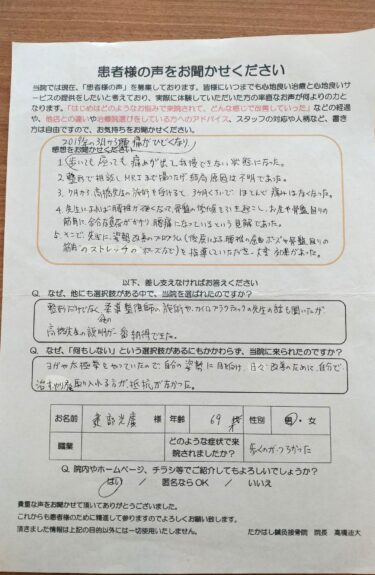 患者様の声をお聞かせください
当院では現在、「患者様の声」を募集しております。皆様にいつまでも心地良い治療と心地良いサ
ービスの提供をしたいと考えており、実際に体験していただいた方の率直なお声が何よりの力と
なります。「はじめはどのようなお悩みで来院されて、どんな感じで改善していった」などの経過
や、他店との違いや治療院選びをしている方へのアドバイス、スタッフの対応や人柄など、書き
方は自由ですので、お気持ちをお聞かせください。
2018年の3月から腰痛がひどくなり
感想をお聞かせください
1 歩いても座っても痛みが出て我慢できない状態になった。
2 整形で相談しMRIまで撮ったが結局原因は不明であった。
3 7月から高橋先生の施術を受けて、3ヶ月くらいで ほとんど痛みはなくなった。
4 先生によれば腰椎が
筋肉に余分な負担がかかり 腰痛になっているという見解であった。
5 そこで先生に姿勢改善のプログラム
筋肉のストレッチの を指導していただき大変効果があった。
以下、差し支えなければお答えください
Q. なぜ、他にも選択肢がある中で、当院を選ばれたのですか?
整形だけでなく 柔道整復師の施術や、カイロプラクティックの先生の話も聞いたが
高橋先生の説明が一番納得できた。
Q. なぜ、「何もしない」という選択肢があるにもかかわらず、当院に来られたのですか?
ヨガや太極拳をやっていたので自分の姿勢に 日々改善のために、自分で
取り入れる方が抵抗がなかった。
お名前 建部光廣 様 年齢 69才 性別 男・女
職業 どのような症状で来
院されましたか? 歩くのがつらかった
Q. 院内やホームページ、チラシ等でご紹介してもよろしいでしょうか?
はい / 匿名ならOK / いいえ
貴重な声をお聞かせて頂いてありがとうございました。
これからも患者様のために精進して参りますのでよろしくお願い致します。
頂きました情報は上記の目的以外には一切使用いたしません。 たかはし鍼灸接骨院 院長 高橋迪大